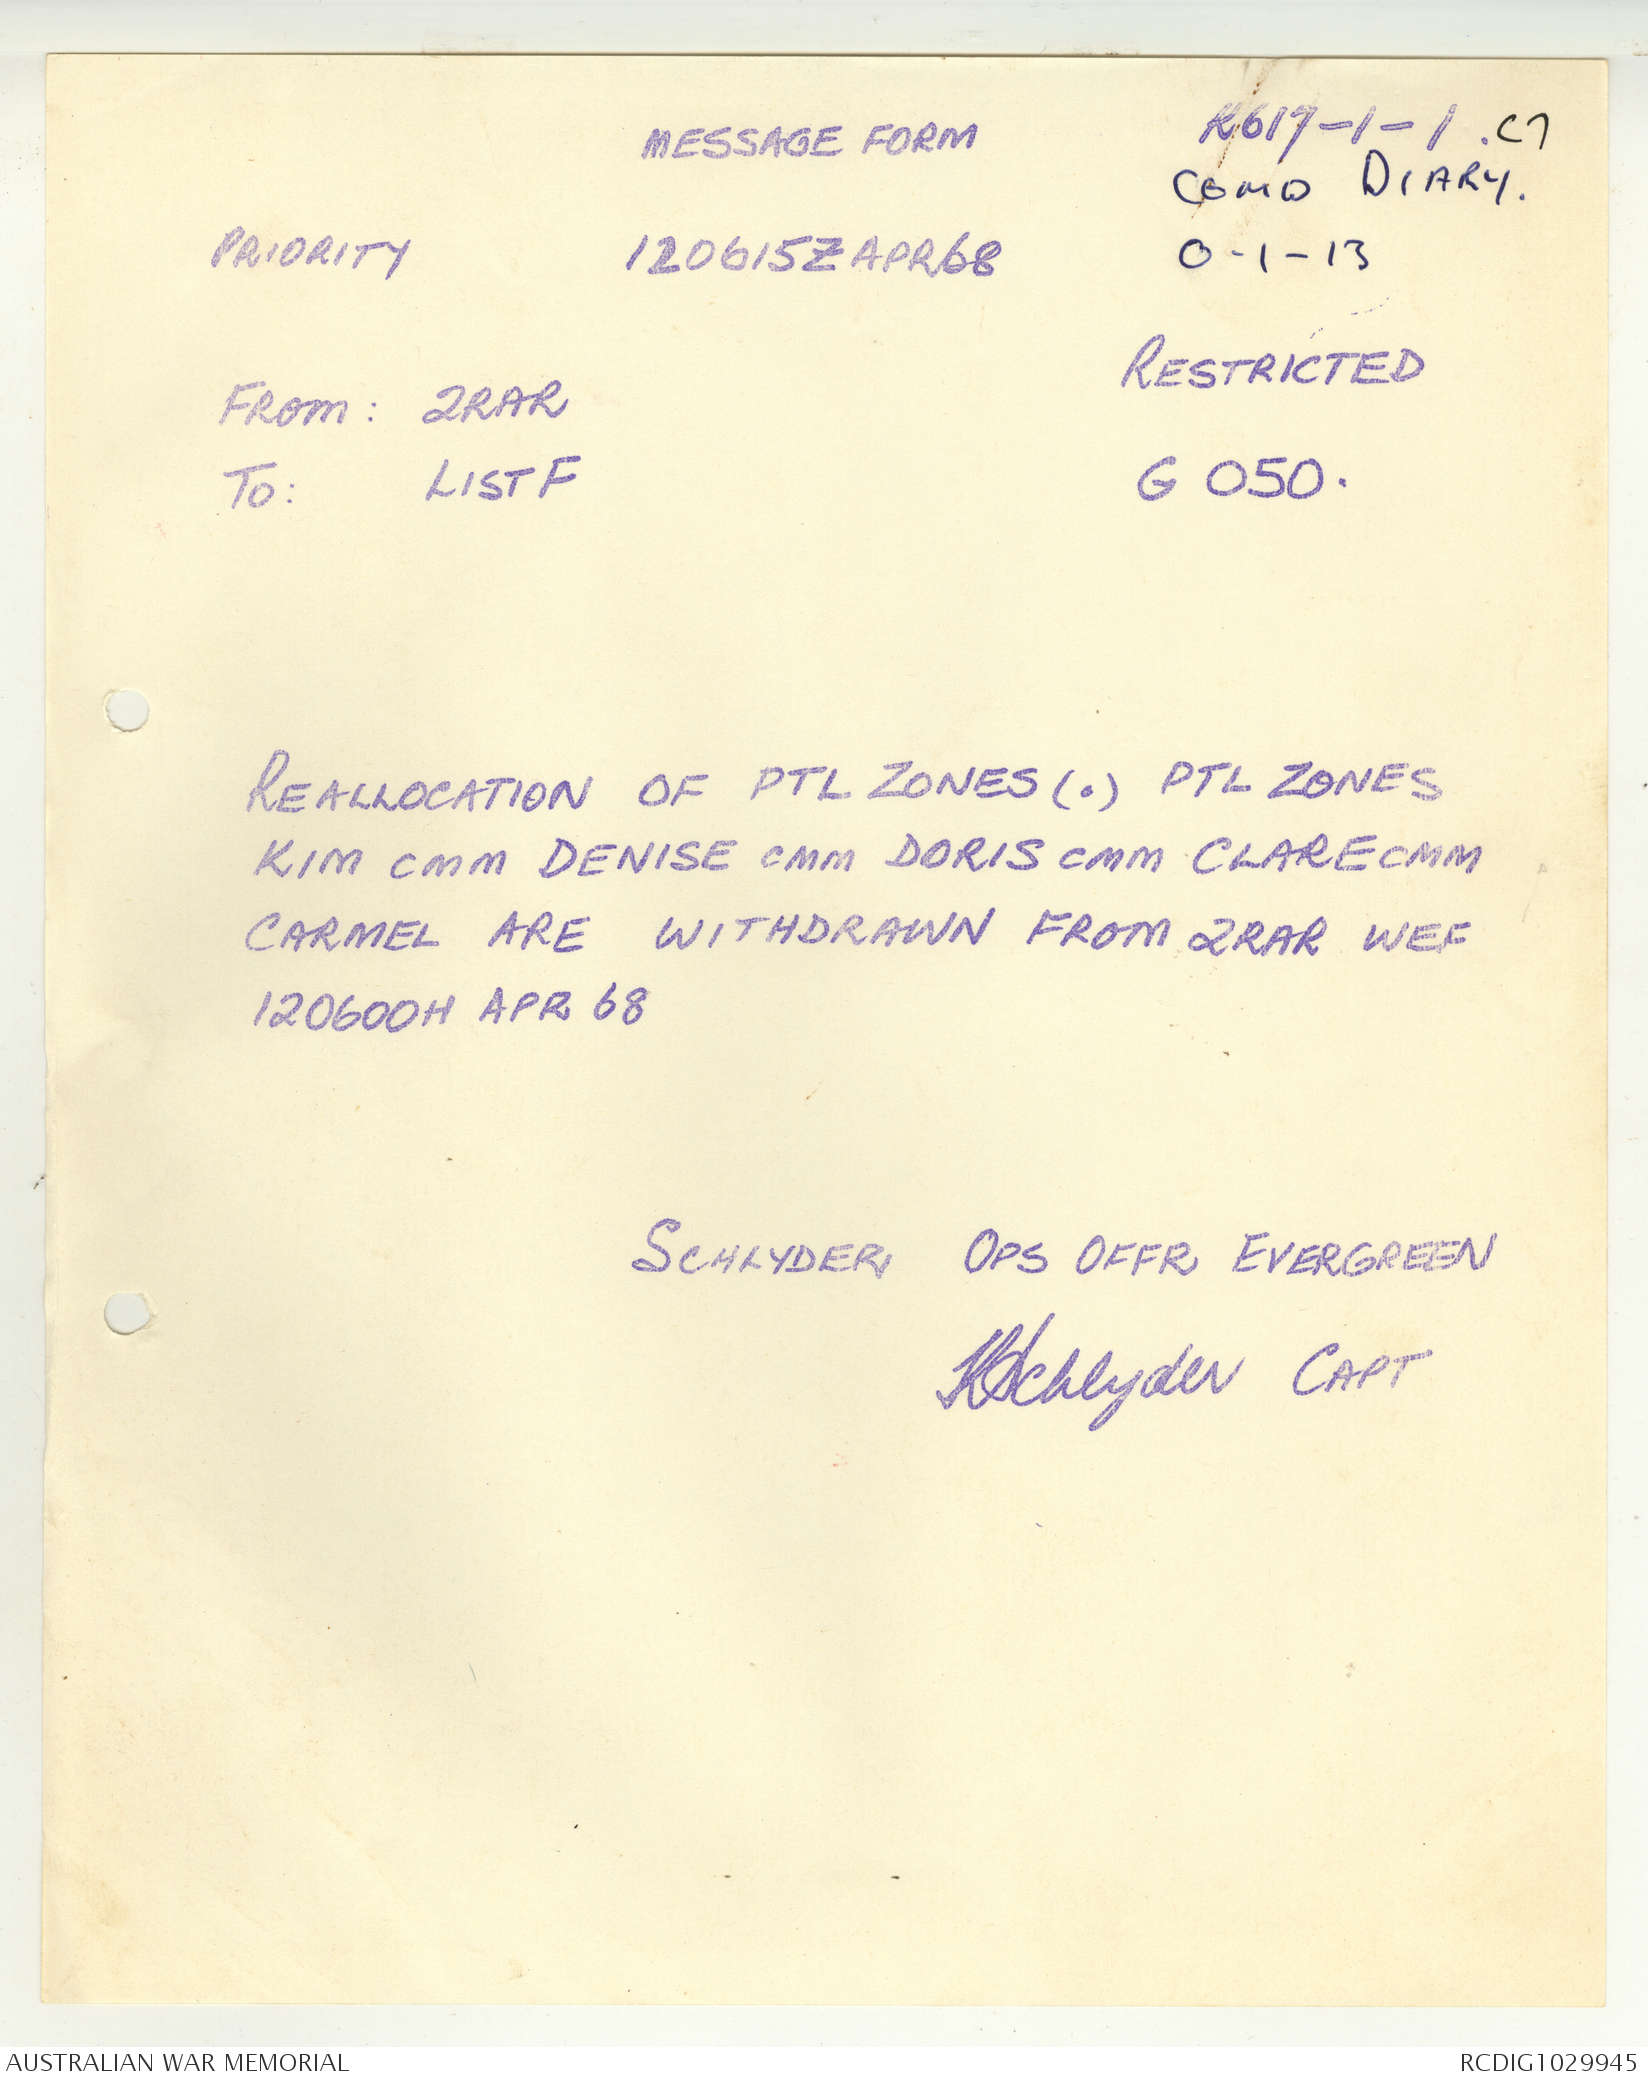 MESSAGE FORM
K617-1-1 .C7
COMD DIARY.
0-1-13
PRIORITY 120615Z APR68
RESTRICTED
FROM: 2RAR
TO: LIST F
G 050.
REALLOCATION OF PTL ZONES (.) PTL ZONES
KIM CMM DENISE CMM DORIS CMM CLARE CMM
CARMEL ARE WITHDRAWN FROM 2RAR WEF
120600H APR 68
SCHLYDER, OPS OFFR EVERGREEN
KSchlyder CAPT
AUSTRALIAN WAR MEMORIAL
RCDIG1029945